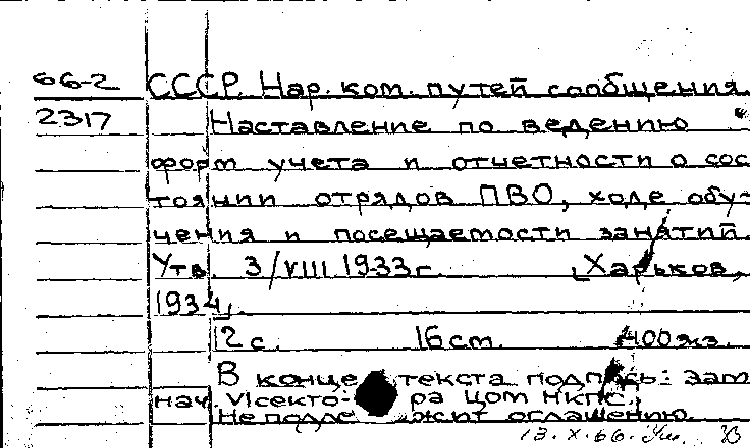 66-2 СССР. Нар. ком. путей сообщения.
2317 Наставление по ведению
форм учета и отчетности о сос
тоянии отрядов ПВО, ходе обу-
чения и посещаемости занятий.
Утв. 3/VIII 1933г. Харьков,
1934.
12 с. 16 см. 400 экз.
В конце текста подпись: зам
нач. VI секто- ра ЦОМ НКПС.
Не подле жит оглашению.
13.X.66.